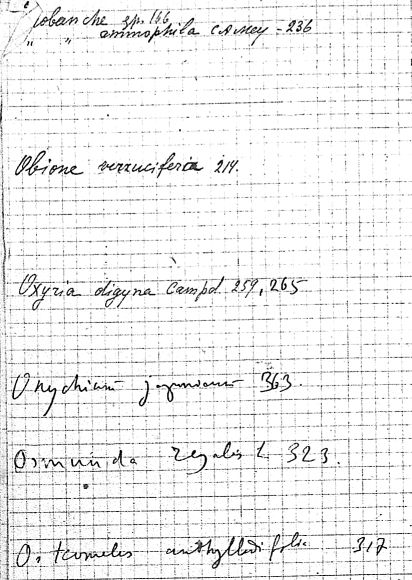 Orobanche sp. 166
„ „ ammophila CAMey - 236
Obione verrucifera 214.
Oxyria digyna Campd 259, 265
Onychium japonicum 363.
Osmunda regalis L 323.
Osteomeles anthyllidifolia 317